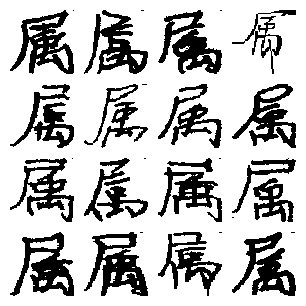 属属属属
属属属属
属属属属
属属属属